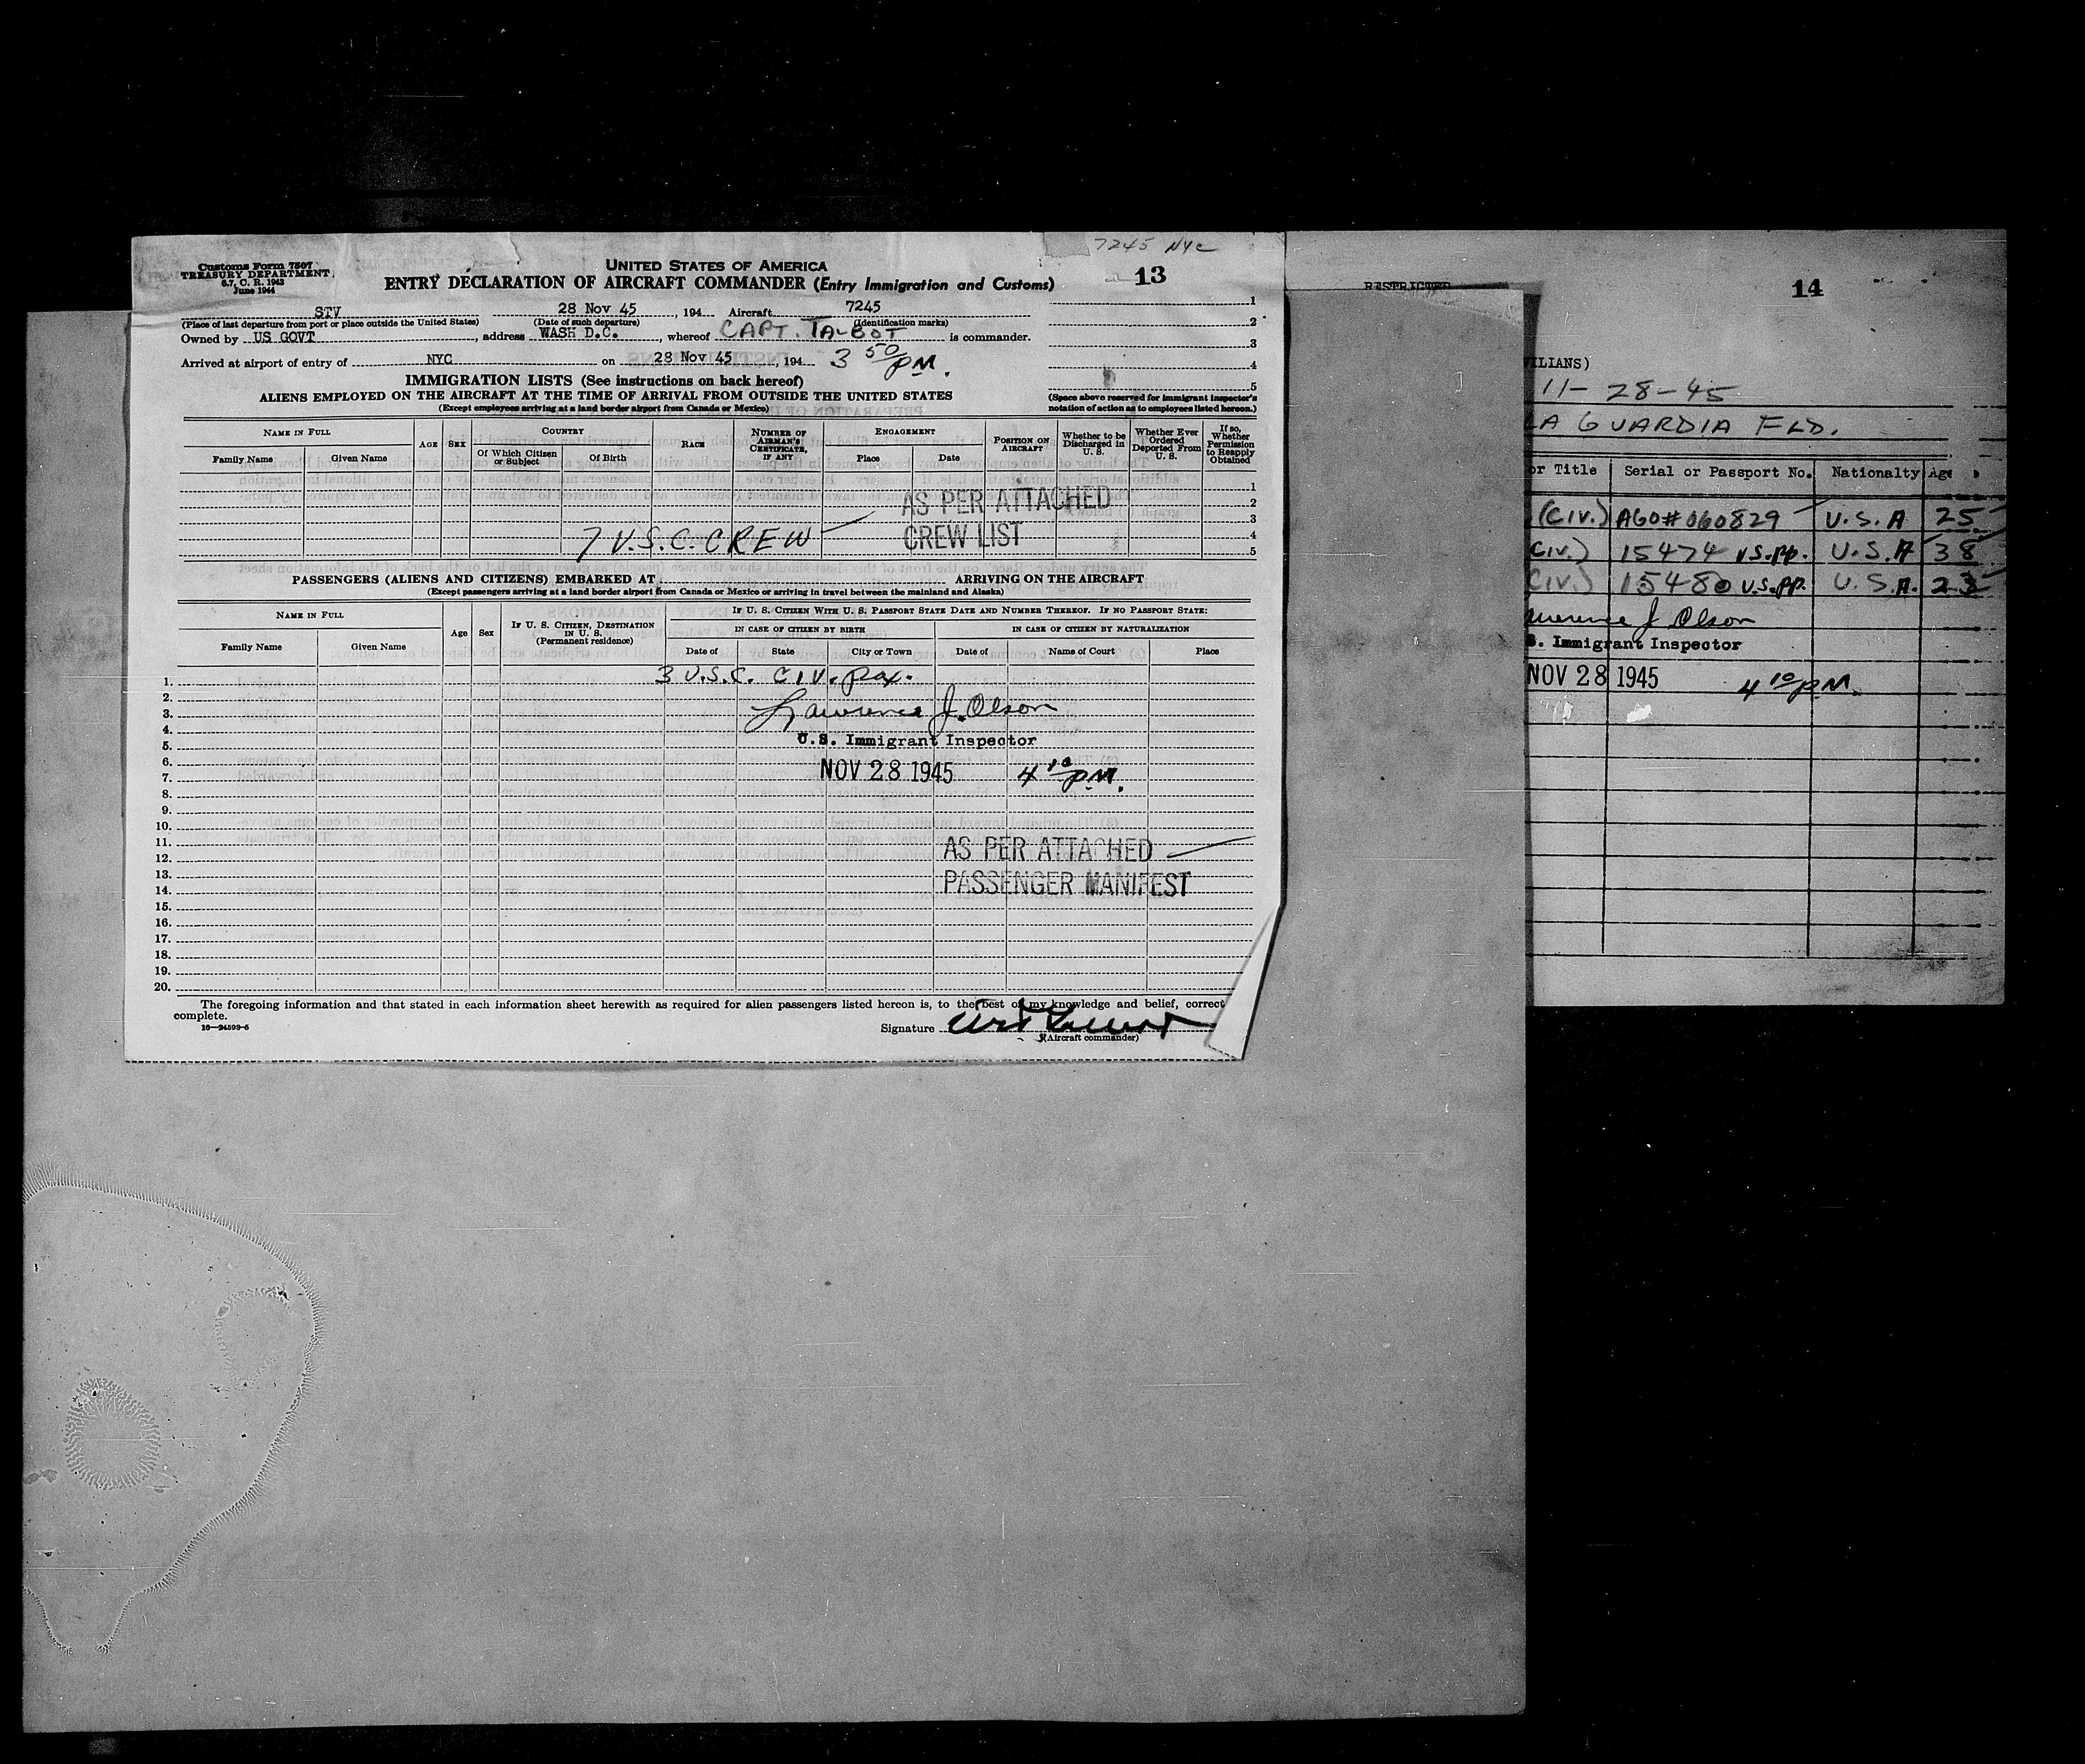 7245 NYC
13
Customs Form 7507
TREASURY DEPARTMENT
6.7, C. R. 1943
June 1944
UNITED STATES OF AMERICA
ENTRY DECLARATION OF AIRCRAFT COMMANDER (Entry Immigration and Customs)
STV 28 Nov 45, 194 Aircraft 7245
(Place of last departure from port or place outside the United States) (Date of such departure) (Identification marks)
Owned by US GOVT, address WASH D.C., whereof CAPT. TALBOT is commander.
Arrived at airport of entry of NYC on 28 Nov 45, 194 3 50 PM.
1
2
3
4
5
IMMIGRATION LISTS (See instructions on back hereof)
ALIENS EMPLOYED ON THE AIRCRAFT AT THE TIME OF ARRIVAL FROM OUTSIDE THE UNITED STATES
(Except employees arriving at a land border airport from Canada or Mexico)
(Space above reserved for immigrant inspector's
notation of action as to employees listed hereon.)
NAME IN FULL
Family Name Given Name
AGE SEX
COUNTRY
Of Which Citizen or Subject Of Birth
RACE
NUMBER OF AIRMAN'S CERTIFICATE, IF ANY
ENGAGEMENT
Place Date
POSITION ON AIRCRAFT
Whether to be Discharged in U. S.
Whether Ever Ordered Deported From U. S.
If so, Whether Permission to Reapply Obtained
1
2
3
4
5
AS PER ATTACHED
CREW LIST
7 U.S.C. CREW
PASSENGERS (ALIENS AND CITIZENS) EMBARKED AT ARRIVING ON THE AIRCRAFT
(Except passengers arriving at a land border airport from Canada or Mexico or arriving in travel between the mainland and Alaska)
NAME IN FULL
Family Name Given Name
Age Sex
IF U. S. CITIZEN, DESTINATION IN U. S.
(Permanent residence)
IF U. S. CITIZEN WITH U. S. PASSPORT STATE DATE AND NUMBER THEREOF. IF NO PASSPORT STATE:
IN CASE OF CITIZEN BY BIRTH IN CASE OF CITIZEN BY NATURALIZATION
Date of State City or Town Date of Name of Court Place
3 U.S.C. CIV. Pax.
1.
2.
3. Lawrence J. Olson
4.
5. U.S. Immigrant Inspector
6.
7. NOV 28 1945 4 10 PM.
8.
9.
10.
11. AS PER ATTACHED
12.
13. PASSENGER MANIFEST
14.
15.
16.
17.
18.
19.
20.
The foregoing information and that stated in each information sheet herewith as required for alien passengers listed hereon is, to the best of my knowledge and belief, correct
complete.
16—24593-5
Signature
(Aircraft commander)
RESTRICTED
14
ILIANS)
11-28-45
LA GUARDIA FLD.
or Title Serial or Passport No. Nationalty Age
(CIV.) AGO# 060829 U.S.A 25
CIV.) 15474 U.S.PP. U.S.A 38
CIV.) 15480 U.S.PP. U.S.A. 23
wrence J Olson
S. Immigrant Inspector
NOV 28 1945 4 10 PM.